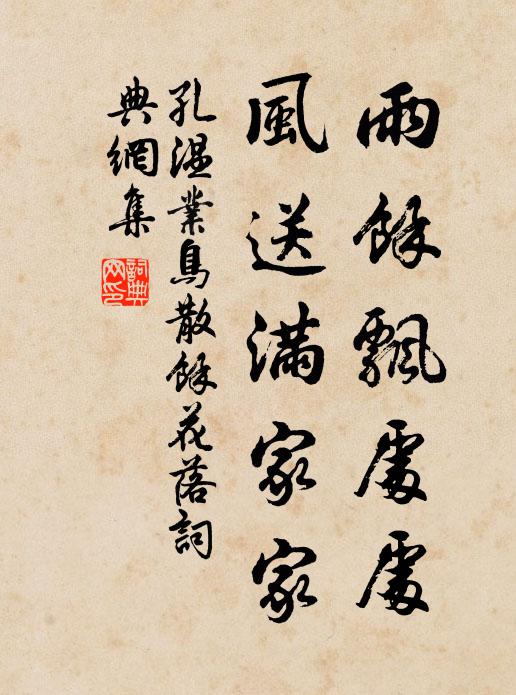 雨餘飄處處
風送滿家家
孔溫業鳥散餘花落詞
典網集
詞典
网印